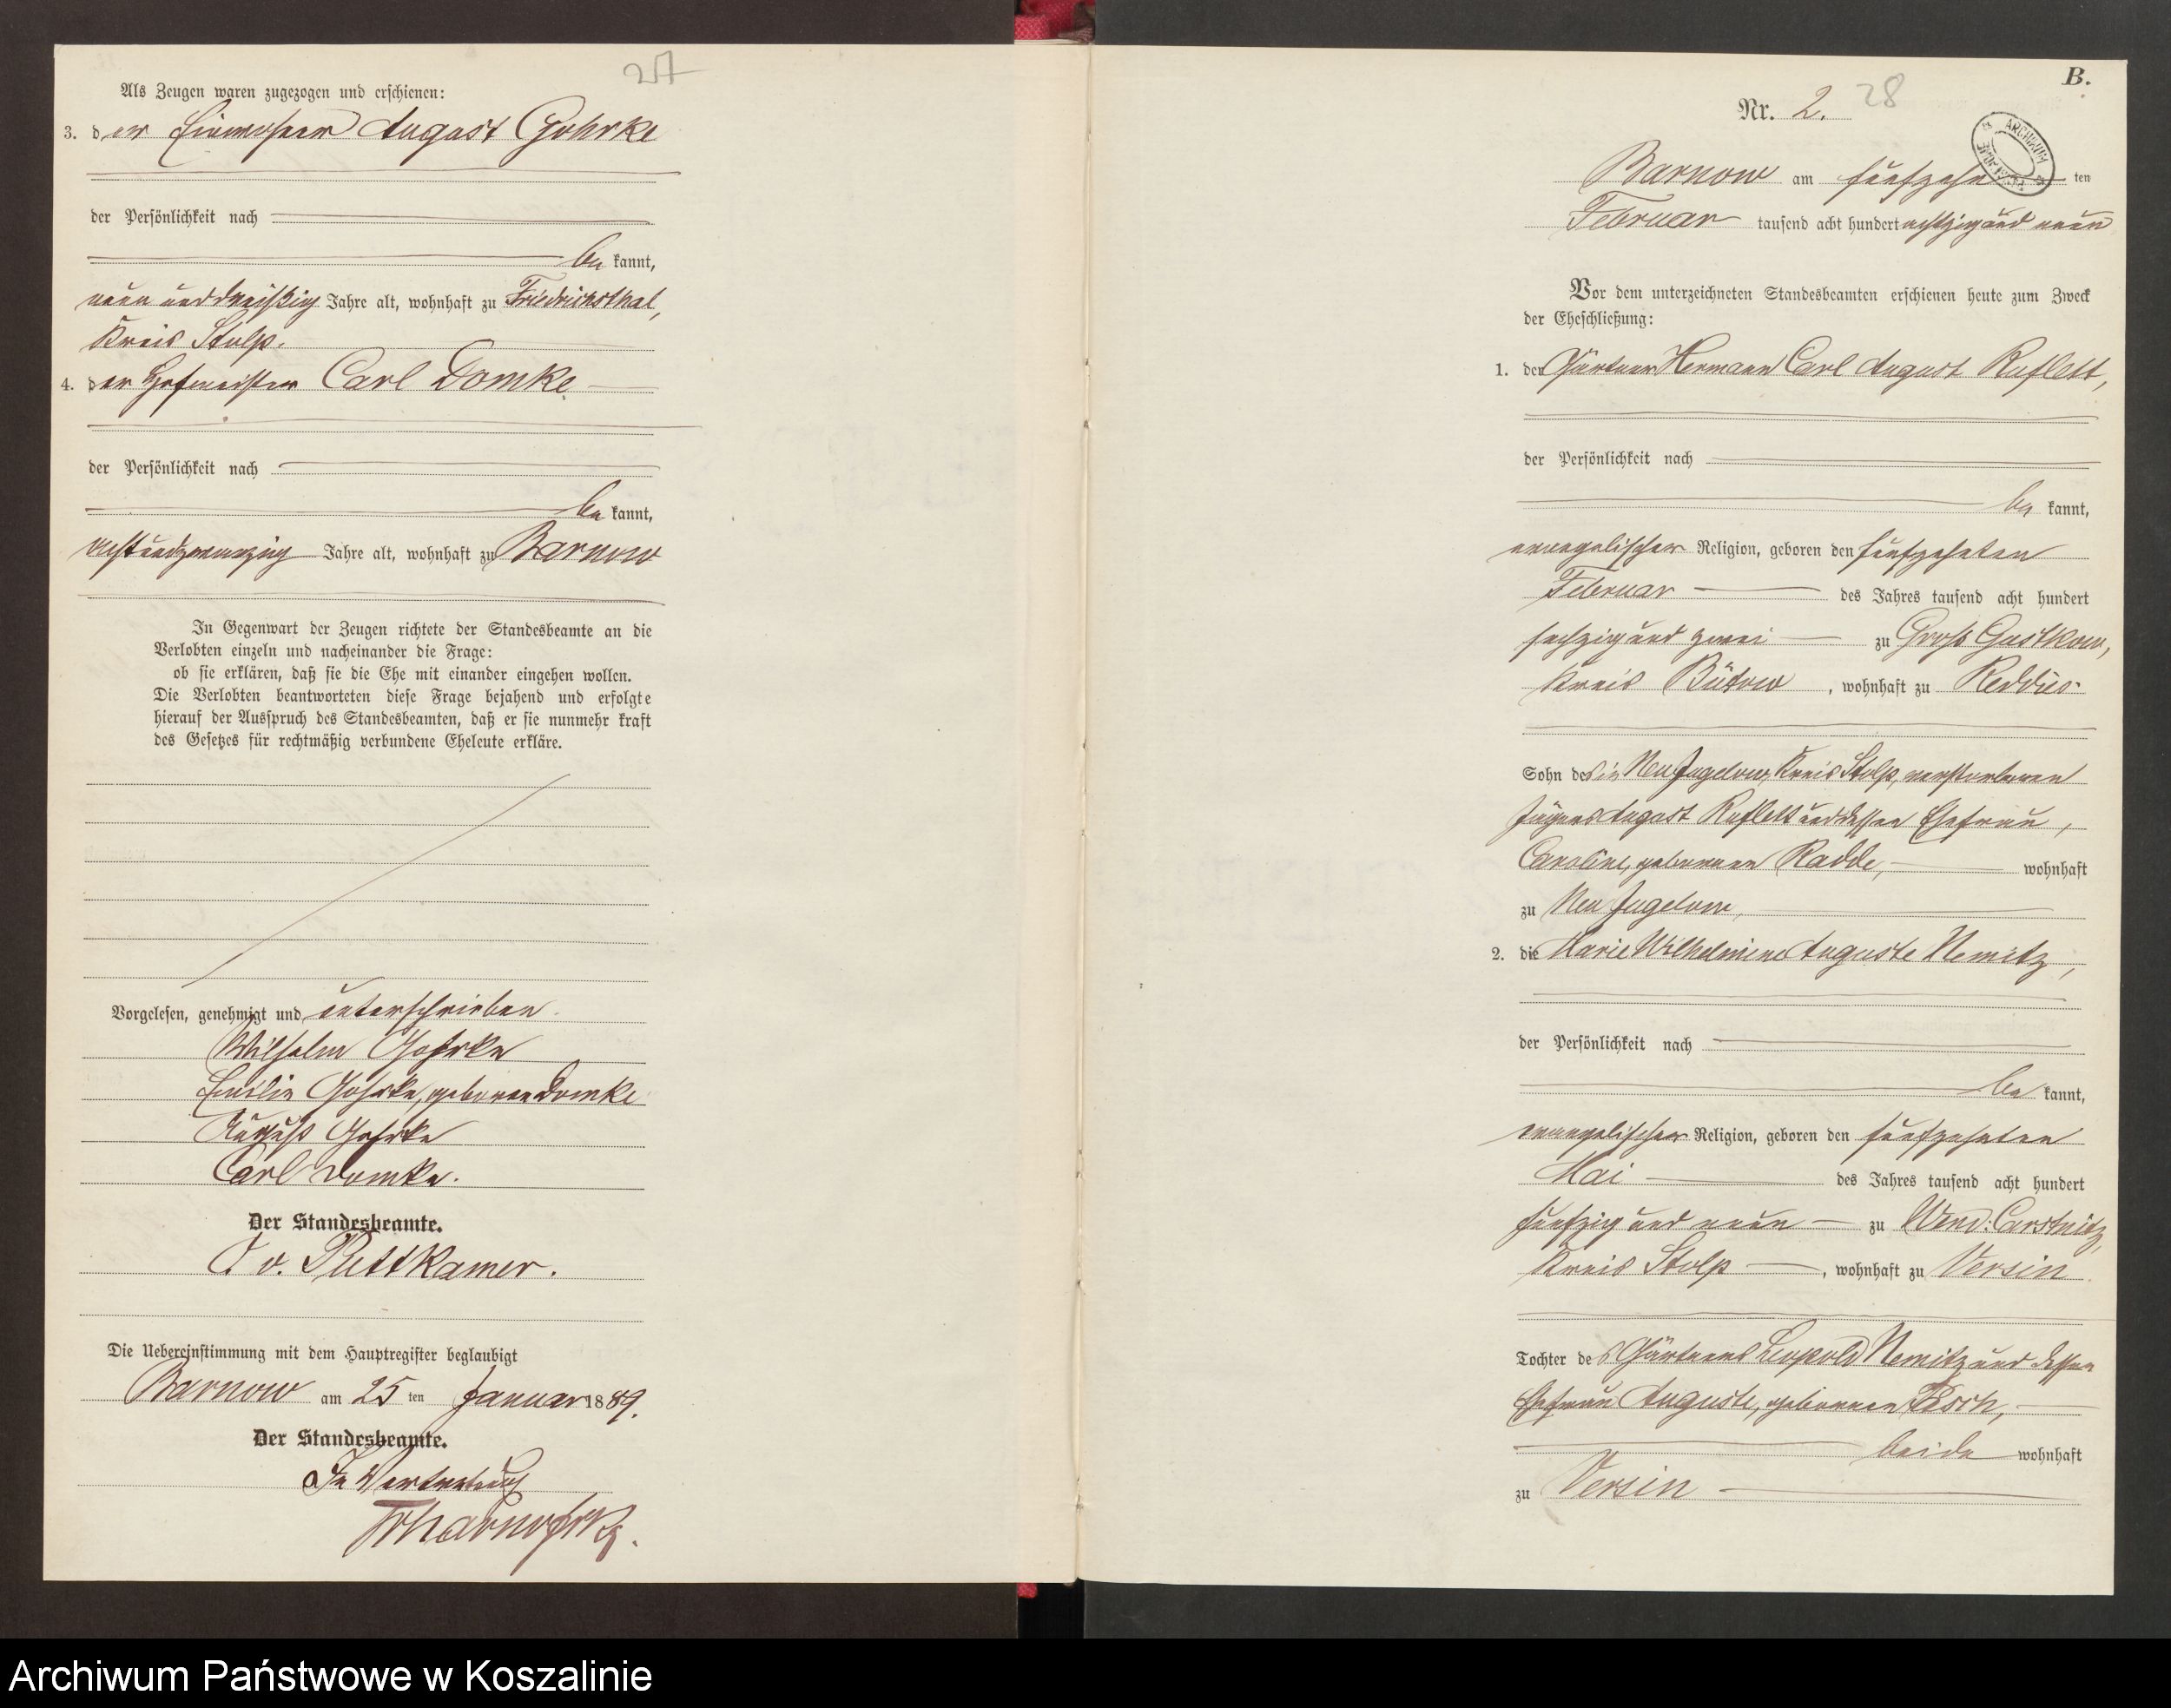 27
Als Zeugen waren zugezogen und erschienen:
3. der Einwohner August Gohrke
der Persönlichkeit nach
be kannt,
neun und dreißig Jahre alt, wohnhaft zu Friedrichsthal,
Kreis Stolp.
4. der Hofmeister Carl Domke
der Persönlichkeit nach
be kannt,
acht und zwanzig Jahre alt, wohnhaft zu Barnow
In Gegenwart der Zeugen richtete der Standesbeamte an die
Verlobten einzeln und nacheinander die Frage:
ob sie erklären, daß sie die Ehe mit einander eingehen wollen.
Die Verlobten beantworteten diese Frage bejahend und erfolgte
hierauf der Ausspruch des Standesbeamten, daß er sie nunmehr kraft
des Gesetzes für rechtmäßig verbundene Eheleute erkläre.
Vorgelesen, genehmigt und unterschrieben.
Wilhelm Gohrke
Emilie Gohrke, geborene Domke
August Gohrke
Carl Domke.
Der Standesbeamte.
v. Puttkamer.
Die Uebereinstimmung mit dem Hauptregister beglaubigt
Barnow am 25 ten Januar 1889.
Der Standesbeamte.
In Vertretung
B.
Nr. 2. 28
ARCHIWUM
Barnow am fünfzehn ten
Februar tausend acht hundert achtzig und neun
Vor dem unterzeichneten Standesbeamten erschienen heute zum Zweck
der Eheschließung:
1. der Gärtner Hermann Carl August Raflett,
der Persönlichkeit nach
be kannt,
evangelischer Religion, geboren den fünfzehnten
Februar des Jahres tausend acht hundert
sechzig und zwei zu Groß Gustkow,
Kreis Bütow, wohnhaft zu Reddies
Sohn des in Neu Jugelow, Kreis Stolp, verstorbenen
Jägers August Raflett und dessen Ehefrau,
Caroline, geborenen Radde, wohnhaft
zu Neu Jugelow,
2. die Marie Wilhelmine Auguste Nemitz,
der Persönlichkeit nach
be kannt,
evangelischer Religion, geboren den fünfzehnten
Mai des Jahres tausend acht hundert
fünfzig und neun zu Wend: Carstnitz,
Kreis Stolp, wohnhaft zu Versin
Tochter des Gärtners Leopold Nemitz und dessen
Ehefrau Auguste, geborenen Pioch,
beide wohnhaft
zu Versin
Archiwum Państwowe w Koszalinie